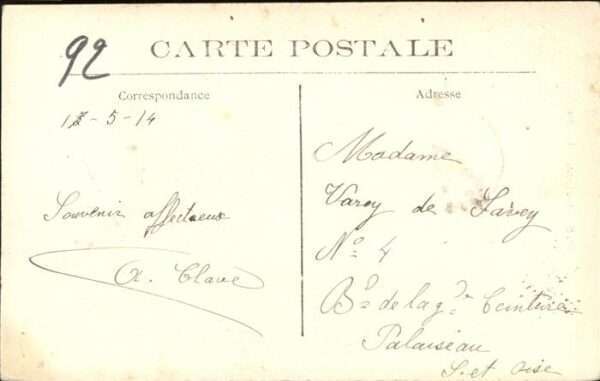 92
CARTE POSTALE
Correspondance
Adresse
- 5 - 14
Souvenir affectueux
A. Clavé
Madame
de
N° 4
Bd de la gde Ceinture
Palaiseau
S. et Oise